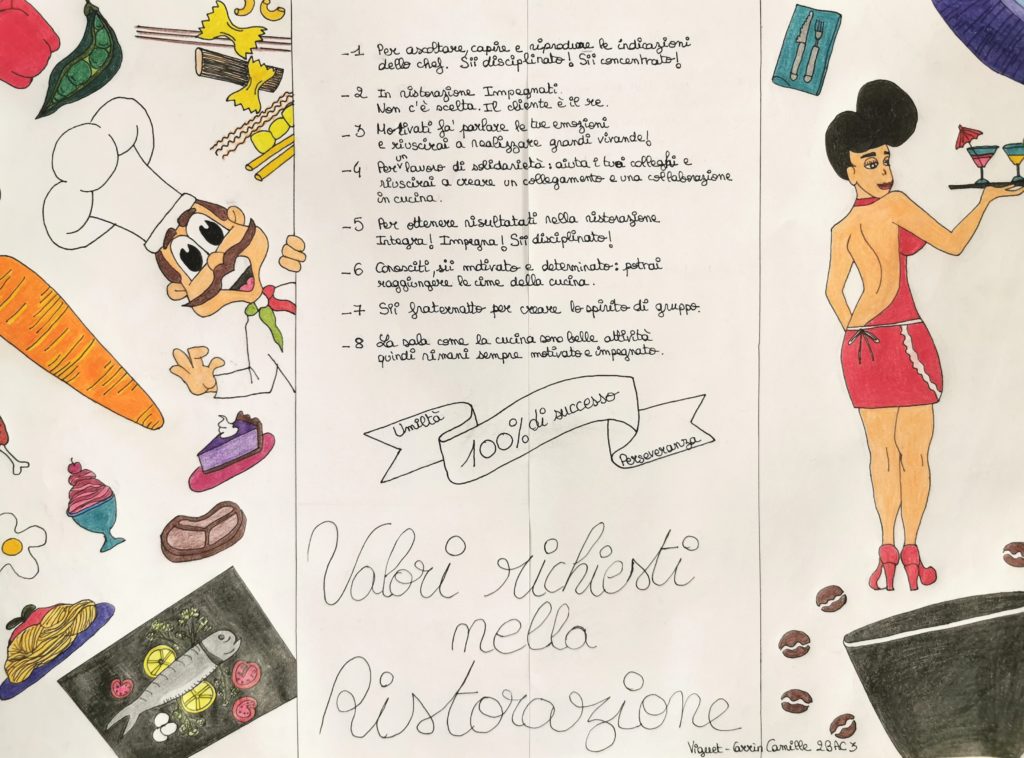 -1 Per ascoltare, capire e riprodurre le indicazioni
dello chef. Sii disciplinato! Sii concentrato!
-2 In ristorazione Impegnati.
Non c'è scelta. Il cliente è il re.
-3 Motivati fa' parlare le tue emozioni
e riuscirai a realizzare grandi vivande!
-4 Per un lavoro di solidarietà: aiuta i tuoi colleghi e
riuscirai a creare un collegamento e una collaborazione
in cucina.
-5 Per ottenere risultatati nella ristorazione
Integra! Impegna! Sii disciplinato!
-6 Conosciti, sii motivato e determinato: potrai
raggiungere le cime della cucina.
-7 Sii fraternatto per creare lo spirito di gruppo.
-8 La sala come la cucina sono belle attività
quindi rimani sempre motivato e impegnato.
Umiltà
100% di successo
Perseveranza
Valori richiesti
nella
Ristorazione
Viguet-Carrin Camille 2BAC3